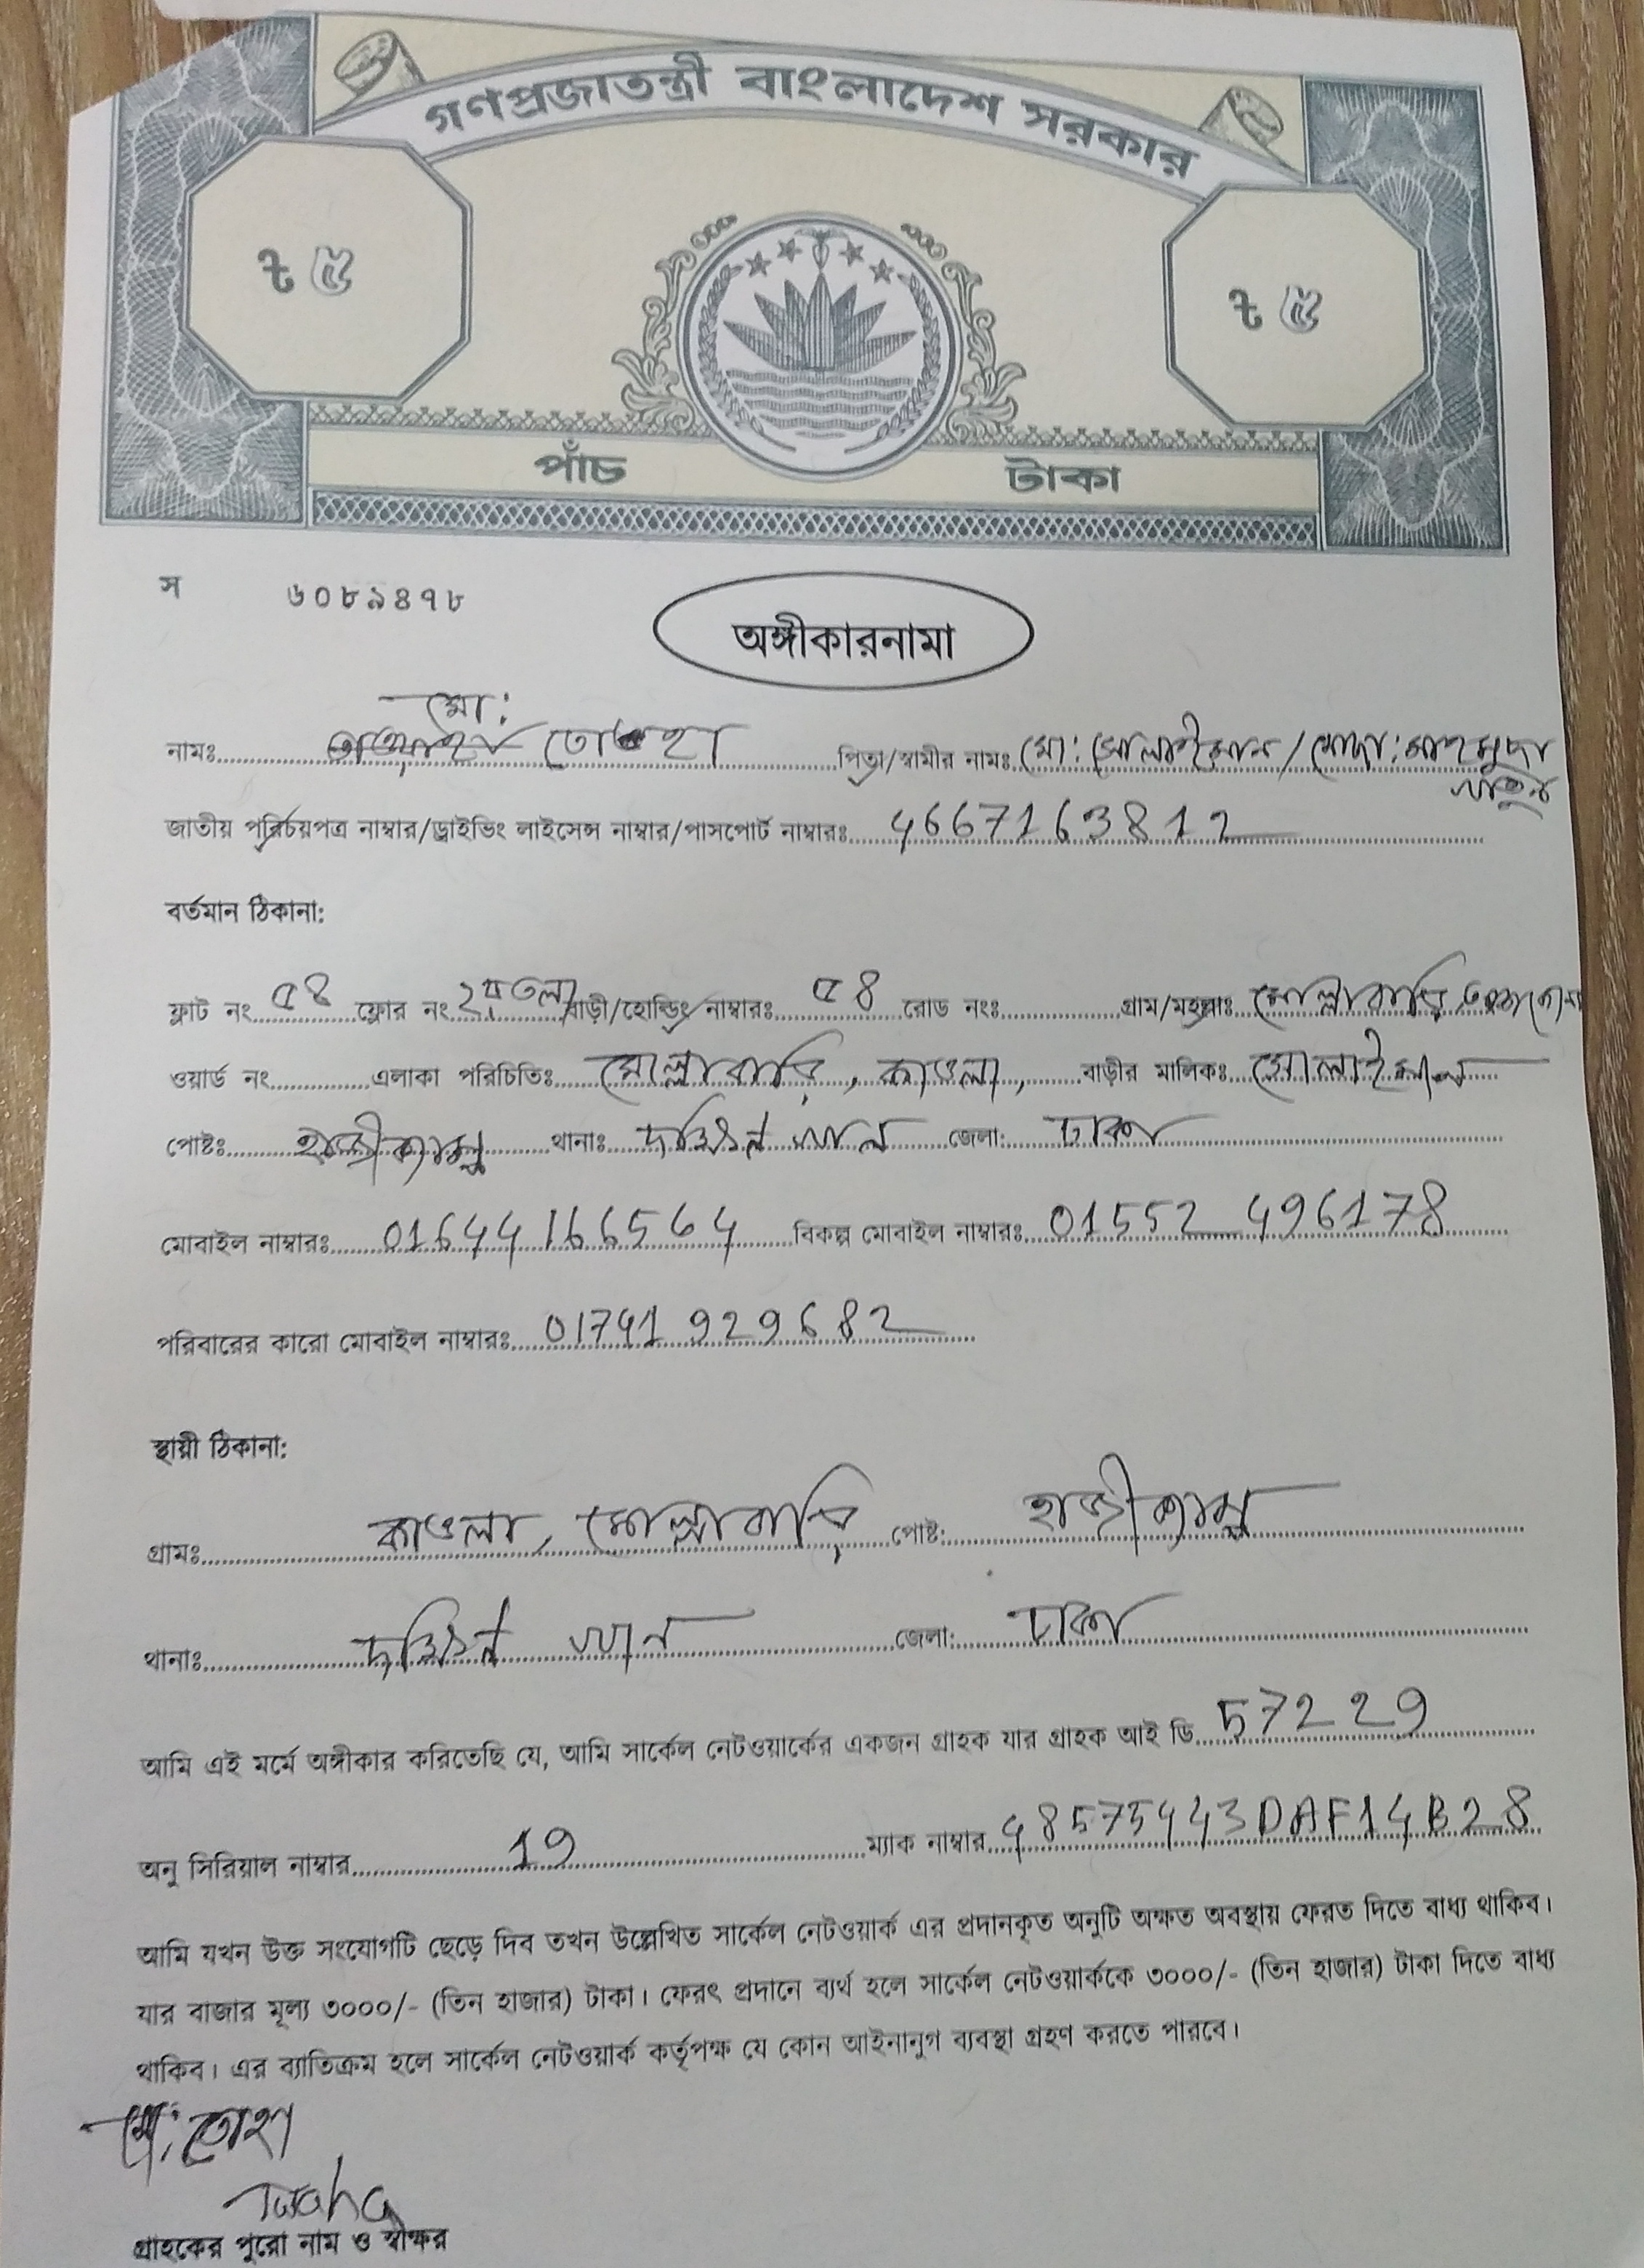 গণপ্রজাতন্ত্রী বাংলাদেশ সরকার
৳ ৫ ৳ ৫
পাঁচ টাকা
স ৬০৮৯৪৭৮
অঙ্গীকারনামা
মো:
নামঃ তোহা পিতা/স্বামীর নামঃ মো: সোলাইমান / মোসা: মাহমুদা
খাতুন
জাতীয় পরিচয়পত্র নাম্বার/ড্রাইভিং লাইসেন্স নাম্বার/পাসপোর্ট নাম্বারঃ 4667163812
বর্তমান ঠিকানা:
ফ্লাট নং ৫৪ ফ্লোর নং ২য় তলা বাড়ী/হোল্ডিং নাম্বারঃ ৫৪ রোড নংঃ গ্রাম/মহল্লাঃ মোল্লাবাড়ি
ওয়ার্ড নং এলাকা পরিচিতিঃ মোল্লাবাড়ি, কাওলা, বাড়ীর মালিকঃ সোলাইমান
পোষ্টঃ হাজীক্যাম্প থানাঃ দক্ষিণ খান জেলা: ঢাকা
মোবাইল নাম্বারঃ 01644166564 বিকল্প মোবাইল নাম্বারঃ 01552 496178
পরিবারের কারো মোবাইল নাম্বারঃ 01741 929682
স্থায়ী ঠিকানা:
গ্রামঃ কাওলা, মোল্লাবাড়ি পোষ্ট: হাজীক্যাম্প
থানাঃ দক্ষিণ খান জেলা: ঢাকা
আমি এই মর্মে অঙ্গীকার করিতেছি যে, আমি সার্কেল নেটওয়ার্কের একজন গ্রাহক যার গ্রাহক আই ডি 57229
অনু সিরিয়াল নাম্বার 19 ম্যাক নাম্বার 48575443DAF14B28
আমি যখন উক্ত সংযোগটি ছেড়ে দিব তখন উল্লেখিত সার্কেল নেটওয়ার্ক এর প্রদানকৃত অনুটি অক্ষত অবস্থায় ফেরত দিতে বাধ্য থাকিব।
যার বাজার মূল্য ৩০০০/- (তিন হাজার) টাকা। ফেরৎ প্রদানে ব্যর্থ হলে সার্কেল নেটওয়ার্ককে ৩০০০/- (তিন হাজার) টাকা দিতে বাধ্য
থাকিব। এর ব্যাতিক্রম হলে সার্কেল নেটওয়ার্ক কর্তৃপক্ষ যে কোন আইনানুগ ব্যবস্থা গ্রহণ করতে পারবে।
মো: তোহা
Twoha
গ্রাহকের পুরো নাম ও স্বাক্ষর